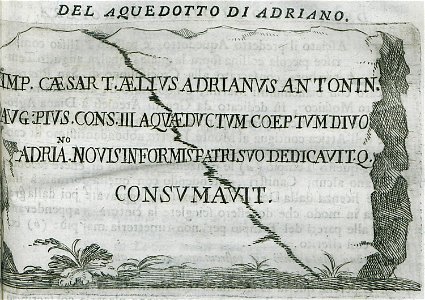 DEL AQUEDOTTO DI ADRIANO.
IMP. CÆSAR T. ÆLIUS ADRIANUS ANTONIN.
AUG: PIVS. CONS. III AQVÆDUCTUM COEPTUM DIVO
ADRIA.NO NOVIS INFORMIS PATRI SVO DEDICAVIT. Q.
CONSVMAVIT.